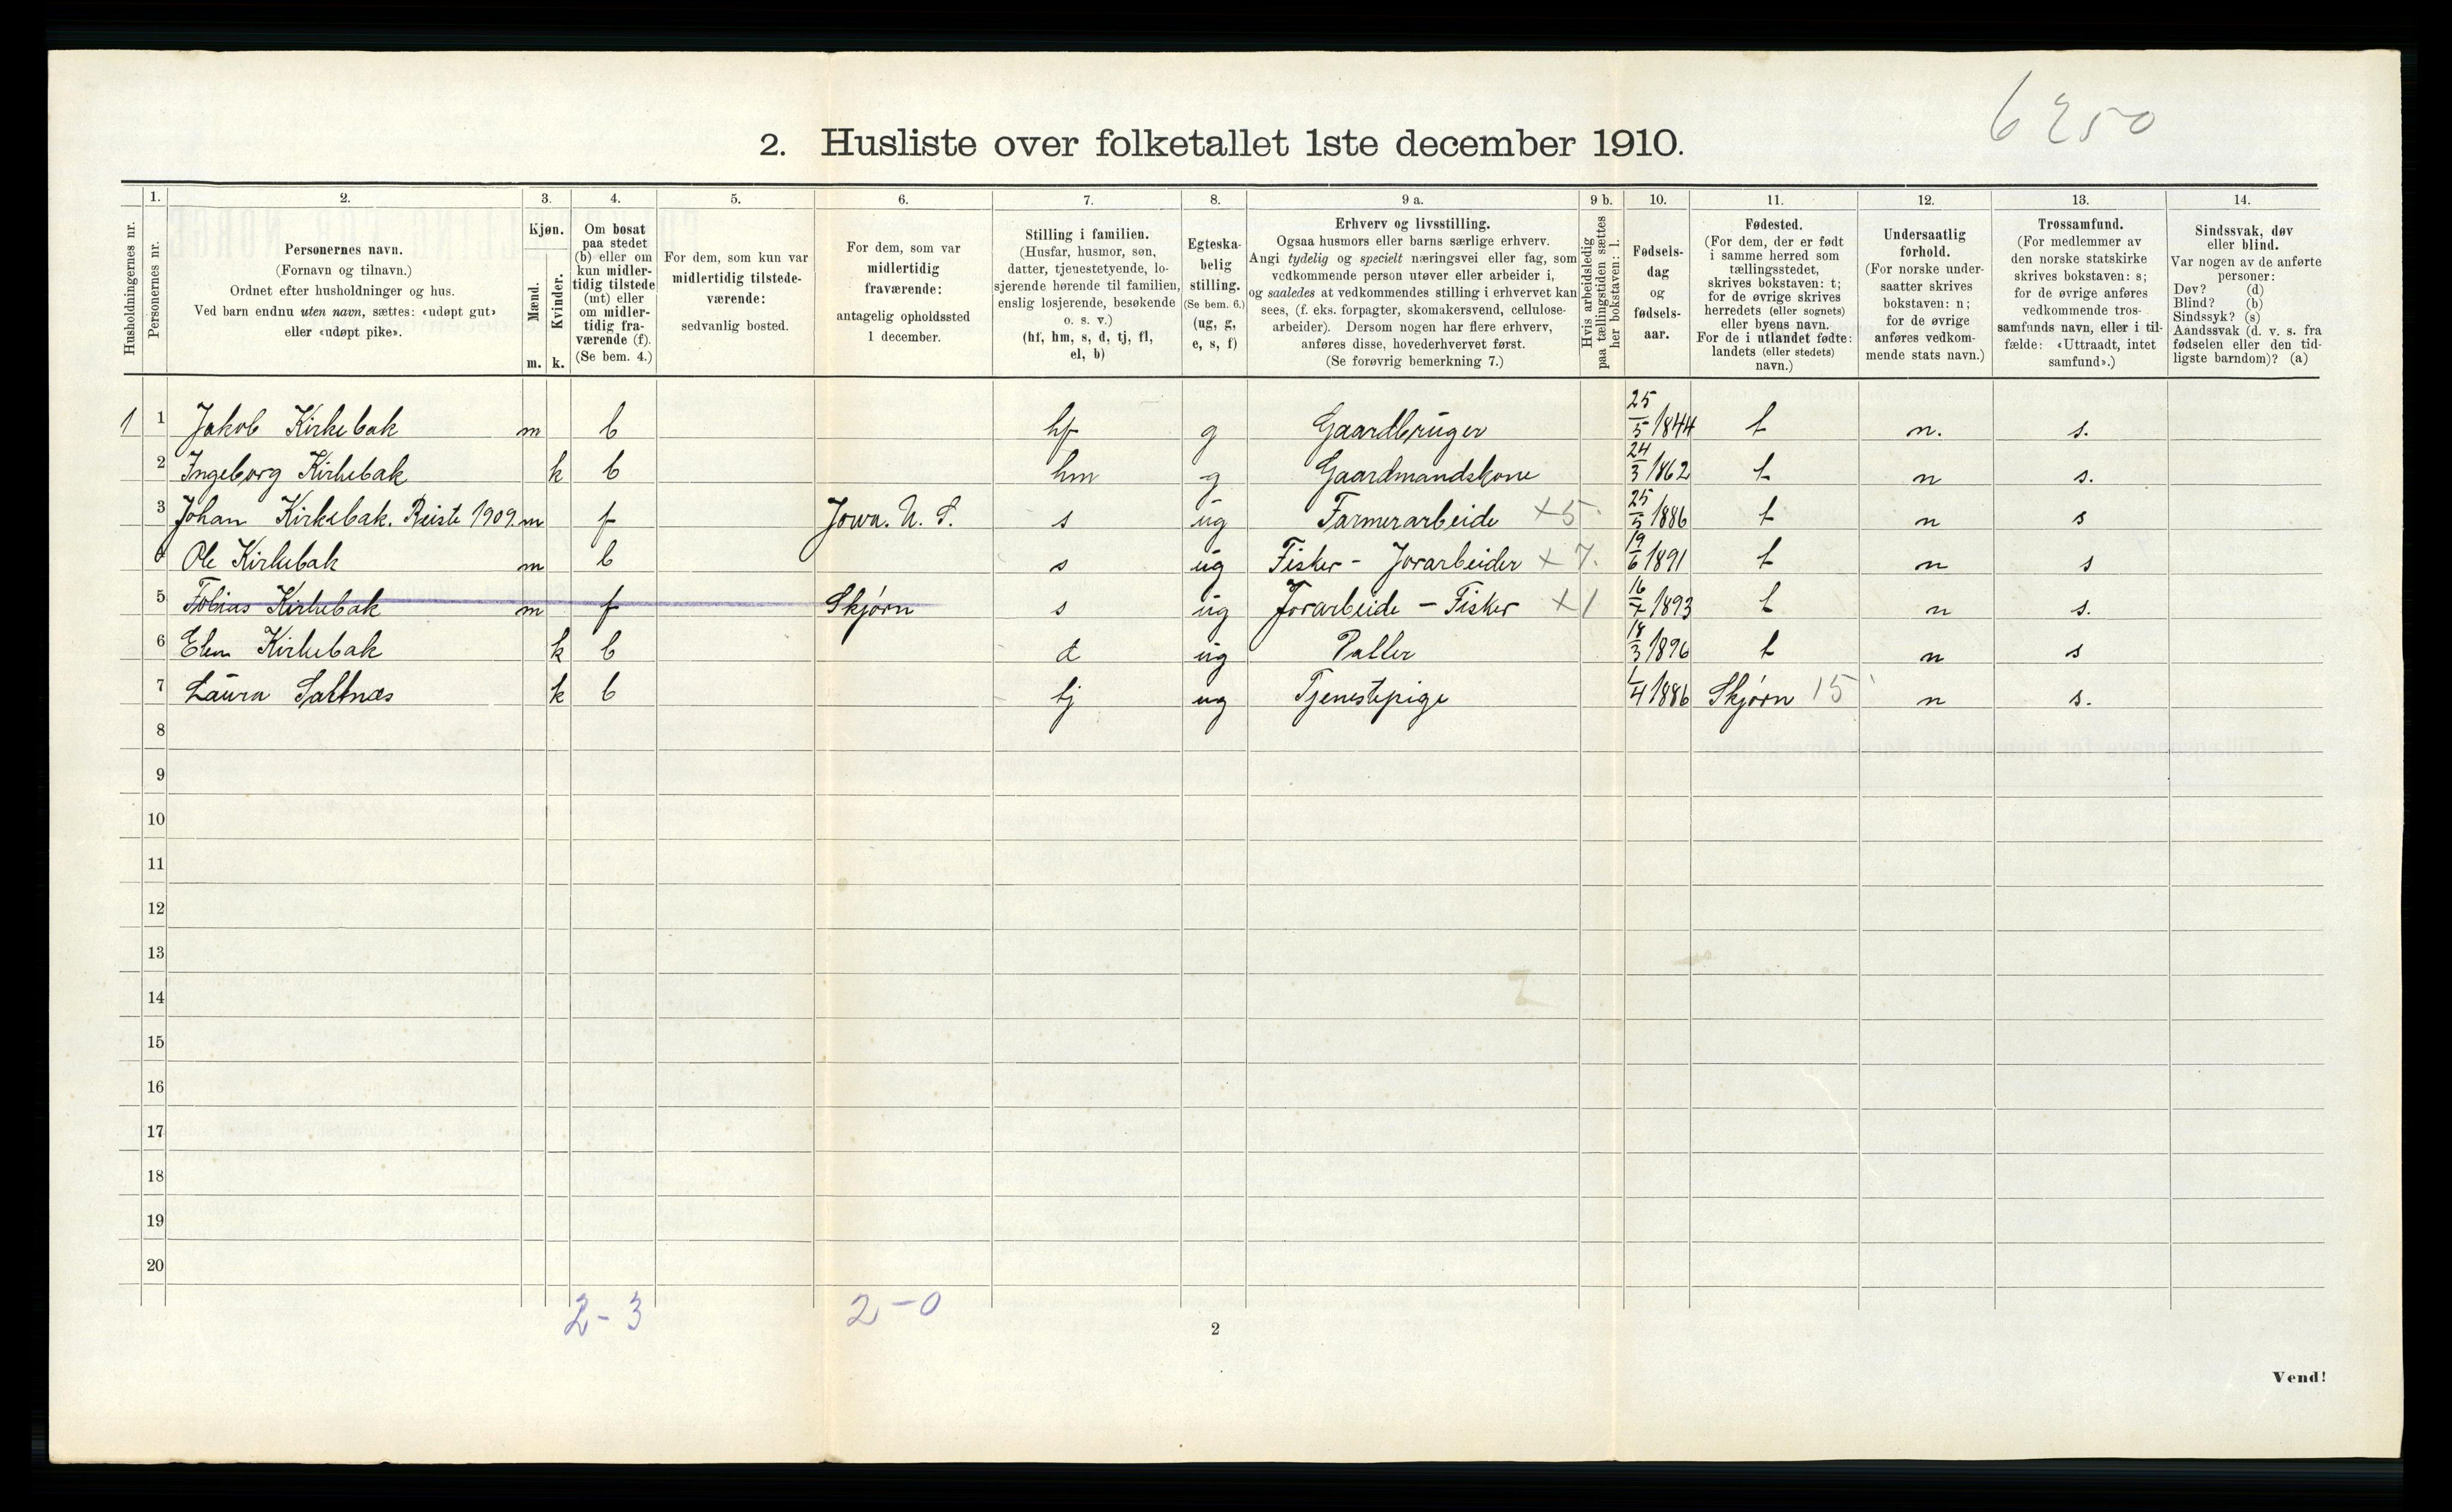 6250
2. Husliste over folketallet 1ste december 1910.
Husholdningernes nr.
1.
Personernes nr.
2.
Personernes navn.
(Fornavn og tilnavn.)
Ordnet efter husholdninger og hus.
Ved barn endnu uten navn, sættes: «udøpt gut»
eller «udøpt pike».
3.
Kjøn.
Mænd.
Kvinder.
m. k.
4.
Om bosat
paa stedet
(b) eller om
kun midler-
tidig tilstede
(mt) eller
om midler-
tidig fra-
værende (f).
(Se bem. 4.)
5.
For dem, som kun var
midlertidig tilstede-
værende:
sedvanlig bosted.
6.
For dem, som var
midlertidig
fraværende:
antagelig opholdssted
1 december.
7.
Stilling i familien.
(Husfar, husmor, søn,
datter, tjenestetyende, lo-
sjerende hørende til familien,
enslig losjerende, besøkende
o. s. v.)
(hf, hm, s, d, tj, fl,
el, b)
8.
Egteska-
belig
stilling.
(Se bem. 6.)
(ug, g,
e, s, f)
9 a.
Erhverv og livsstilling.
Ogsaa husmors eller barns særlige erhverv.
Angi tydelig og specielt næringsvei eller fag, som
vedkommende person utøver eller arbeider i,
og saaledes at vedkommendes stilling i erhvervet kan
sees, (f. eks. forpagter, skomakersvend, cellulose-
arbeider). Dersom nogen har flere erhverv,
anføres disse, hovederhvervet først.
(Se forøvrig bemerkning 7.)
9 b.
Hvis arbeidsledig
paa tællingstiden sættes
her bokstaven: l.
10.
Fødsels-
dag
og
fødsels-
aar.
11.
Fødested.
(For dem, der er født
i samme herred som
tællingsstedet,
skrives bokstaven: t;
for de øvrige skrives
herredets (eller sognets)
eller byens navn.
For de i utlandet fødte:
landets (eller stedets)
navn.)
12.
Undersaatlig
forhold.
(For norske under-
saatter skrives
bokstaven: n;
for de øvrige
anføres vedkom-
mende stats navn.)
13.
Trossamfund.
(For medlemmer av
den norske statskirke
skrives bokstaven: s;
for de øvrige anføres
vedkommende tros-
samfunds navn, eller i til-
fælde: «Uttraadt, intet
samfund».)
14.
Sindssvak, døv
eller blind.
Var nogen av de anførte
personer:
Døv? (d)
Blind? (b)
Sindssyk? (s)
Aandssvak (d. v. s. fra
fødselen eller den tid-
ligste barndom)? (a)
1 1 Jakob Kirkebak m b hf g Gaardbruger 25/5 1844 t n. s.
2 Ingeborg Kirkebak k b hm g Gaardmandskone 24/3 1862 t n s.
3 Johan Kirkebak. Reiste 1909. m f Jowa. U. S. s ug Farmerarbeide +5 25/5 1886 t n s
4 Ole Kirkebak m b s ug Fisker - Jorarbeider + 7. 19/6 1891 t n s
5 Tobias Kirkebak m f Skjørn s ug Jorarbeide - Fisker +1 16/7 1893 t n s.
6 Elen Kirkebak k b d ug 18/3 1896 t n s
7 Laura Saltnæs k b tj ug Tjenestepige 1/4 1886 Skjørn 15 n s.
8
9
10
11
12
13
14
15
16
17
18
19
20
2-3 2-0
2
Vend!